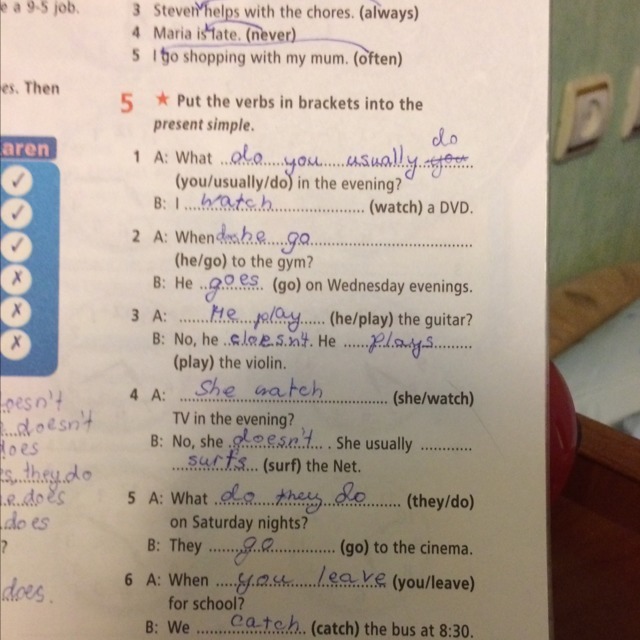 e a 9-5 job.
3 Steven helps with the chores. (always)
4 Maria is late. (never)
5 I go shopping with my mum. (often)
es. Then
aren
5 ★ Put the verbs in brackets into the
present simple.
do
1 A: What do you usually you
(you/usually/do) in the evening?
B: I watch (watch) a DVD.
2 A: When he go
(he/go) to the gym?
B: He goes (go) on Wednesday evenings.
3 A: He play (he/play) the guitar?
B: No, he doesn't. He plays
(play) the violin.
4 A: She watch (she/watch)
TV in the evening?
B: No, she doesn't. She usually
surfs (surf) the Net.
5 A: What do they do (they/do)
on Saturday nights?
B: They go (go) to the cinema.
6 A: When you leave (you/leave)
for school?
B: We catch (catch) the bus at 8:30.
oesn't
doesn't
does
s, they do
e does
do es
?
does.